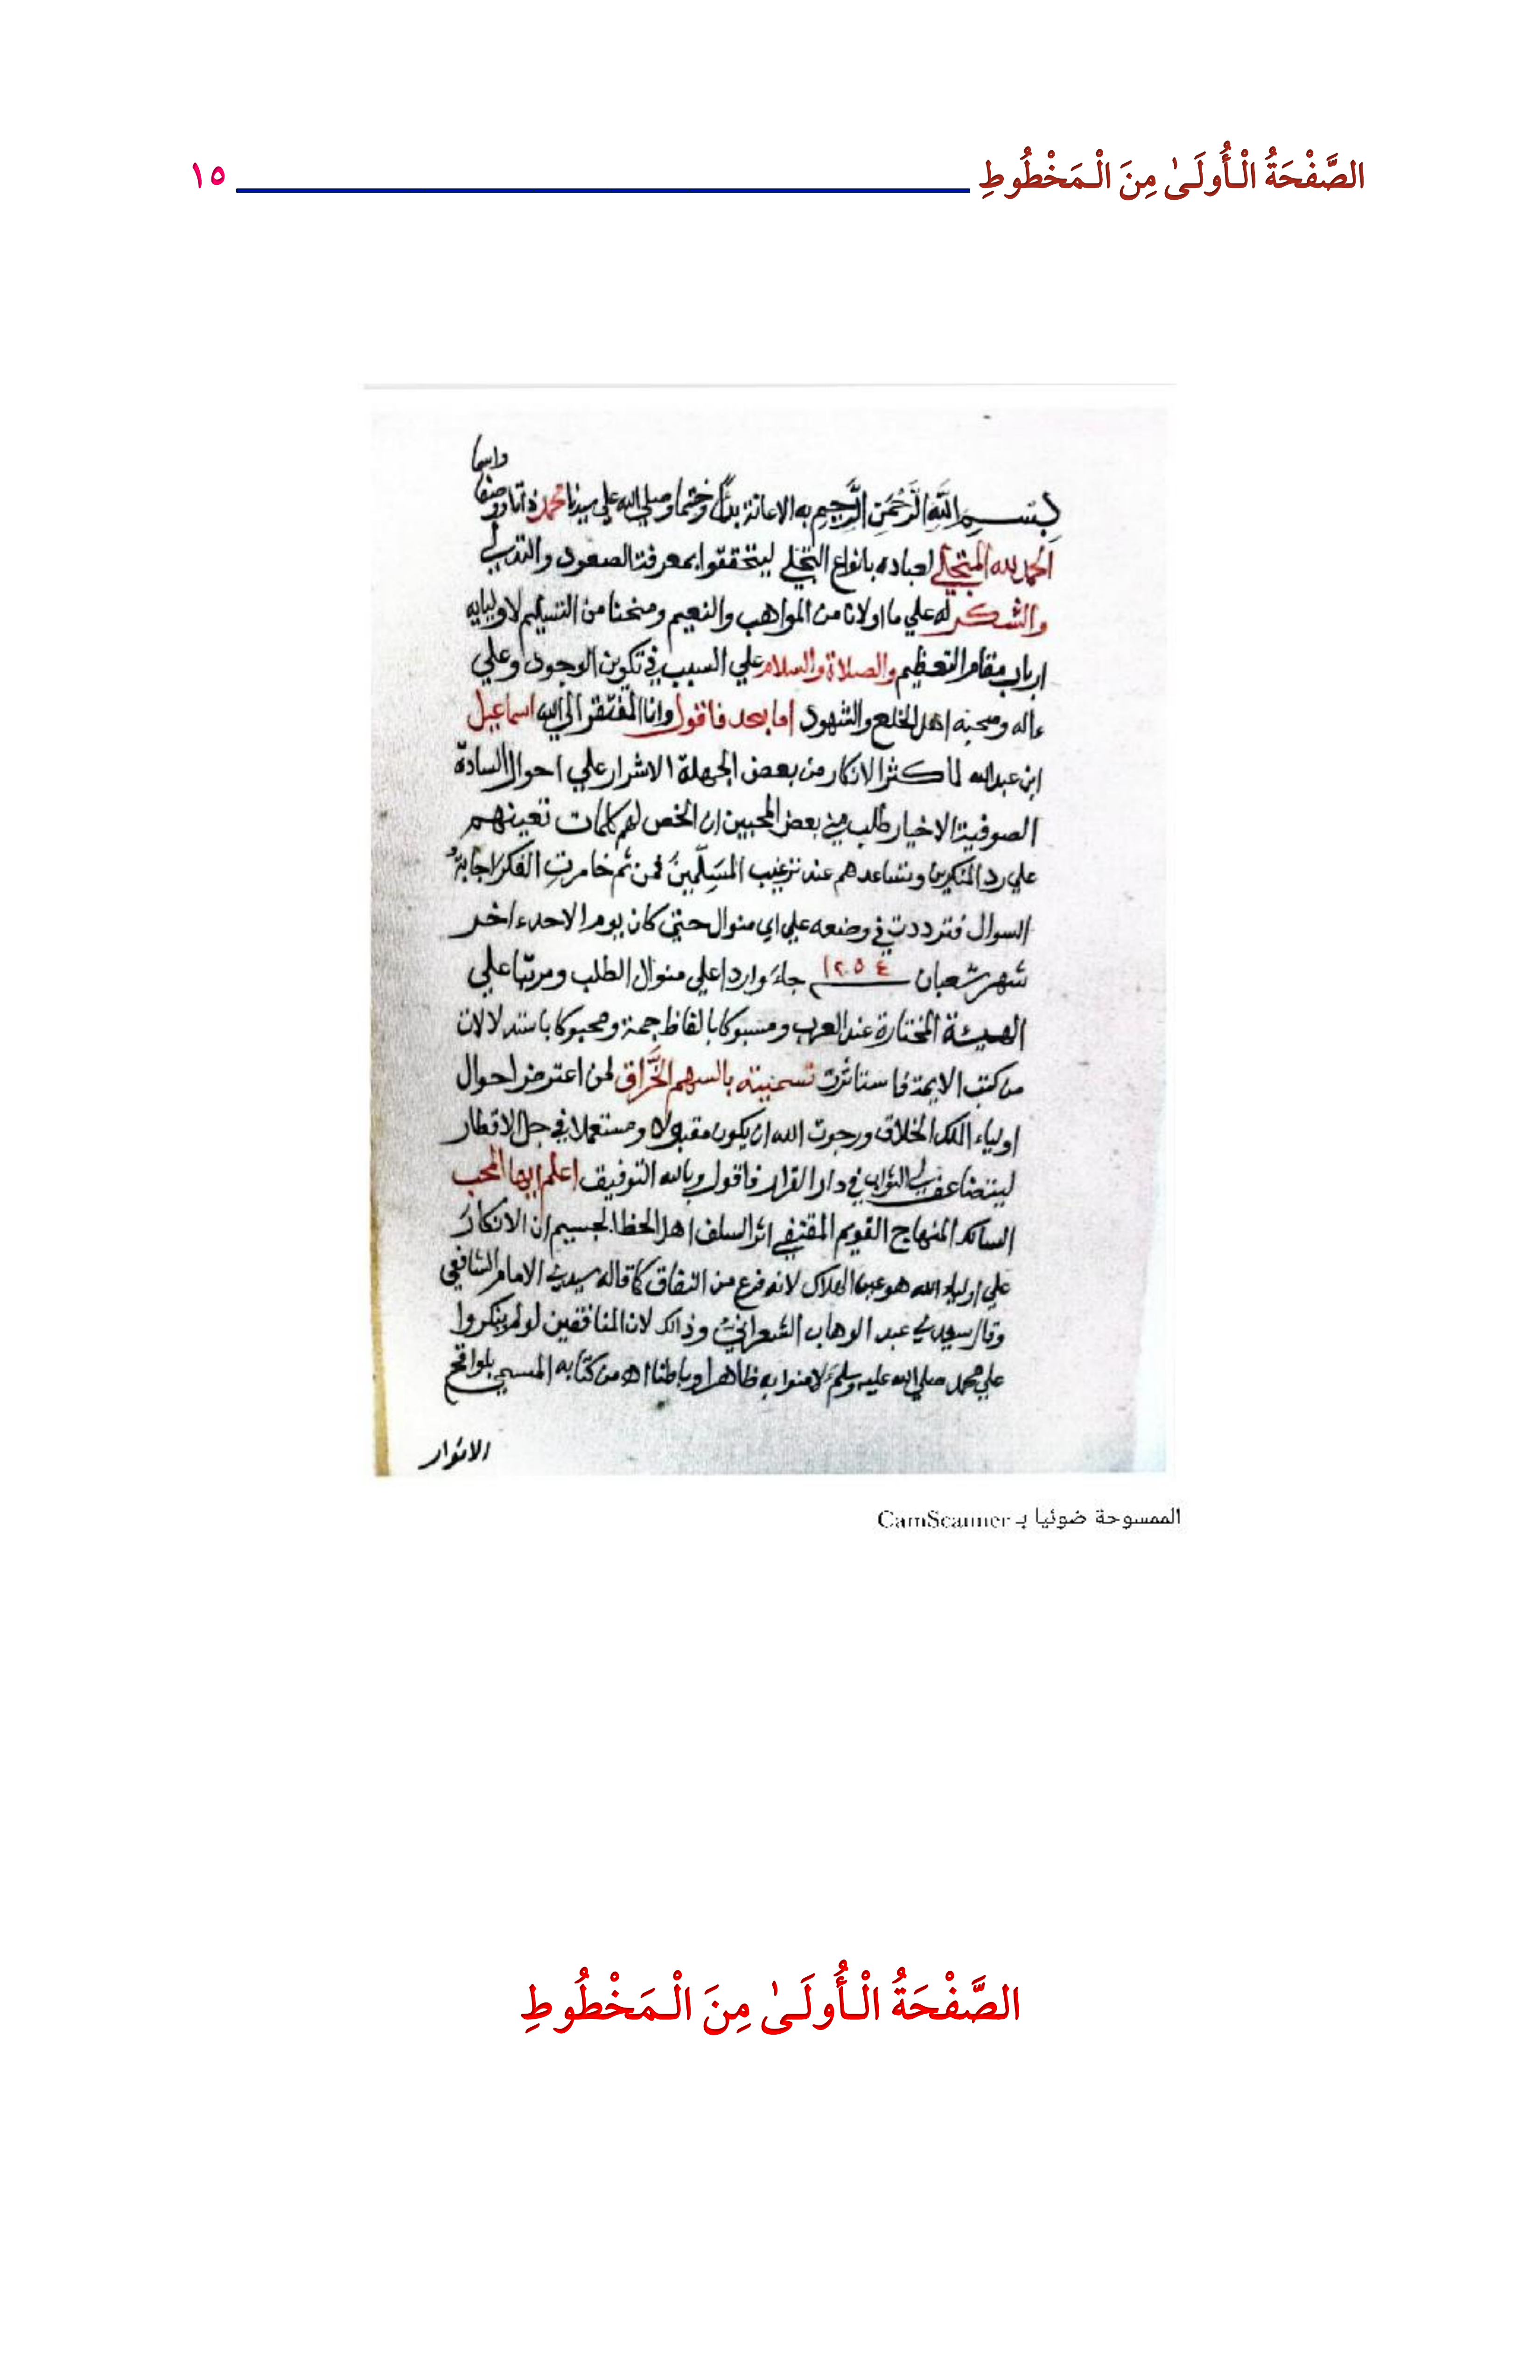 الصَّفْحَةُ الْأُولَىٰ مِنَ الْمَخْطُوطِ ١٥
واسما
بسم الله الرحمن الرحيم به الاعانة بدأ وختما وصلي الله علي سيدنا محمد ذاتا ووصفا
الحمد لله المتجلي لعباده بانواع التجلي ليتحققوا بمعرفة الصعود والتدلي
والشكر له علي ما اولانا من المواهب والنعيم ومنحنا من التسليم لاوليايه
ارباب مقام التعظيم والصلاة والسلام علي السبب في تكوين الوجود وعلي
ءاله وصحبه اهل الخلع والشهود اما بعد فاقول وانا المفتقر الي الله اسماعيل
ابن عبد الله لما كثر الانكار من بعض الجهلة الاشرار علي احوال السادة
الصوفية الاخيار طلب مني بعض المحبين ان الخص لهم كلمات تعينهم
علي رد المنكرين وتساعدهم عند ترغيب المسَلِّمينَ فمن ثم خامرتِ الفكرَ اجابةُ
السوال فترددت في وضعه علي اي منوال حتي كان يوم الاحد ءاخر
شهر شعبان ١٢٥٤ جاءَ واردا علي منوال الطلب ومرتبا علي
الهيئة المختارة عند العرب ومسبوكا بالفاظ جمة ومحبوكا باستدلالات
من كتب الايمة فاستاثرت تسميته بالسهم الخَّراق لمن اعترض احوال
اولياء الملك الخلاق ورجوت الله ان يكون مقبولا ومستعملا في جل الاقطار
ليتضاعف لي الثواب في دار القرار فاقول وبالله التوفيق اعلم ايها المحب
السالك المنهاج القويم المقتفي اثر السلف اهل الحظ الجسيم ان الانكارَ
علي اولياء الله هو عين الهلاك لانه فرع من النفاق كما قاله سيدي الامام الشافعي
وقال سيدي عبد الوهاب الشعراني وذالك لان المنافقين لو لم ينكروا
علي محمد صلي الله عليه وسلم لامنوا به ظاهرا وباطنا اه من كتابه المسمي بلواقح
الانوار
الممسوحة ضوئيا بـ CamScanner
الصَّفْحَةُ الْأُولَىٰ مِنَ الْمَخْطُوطِ